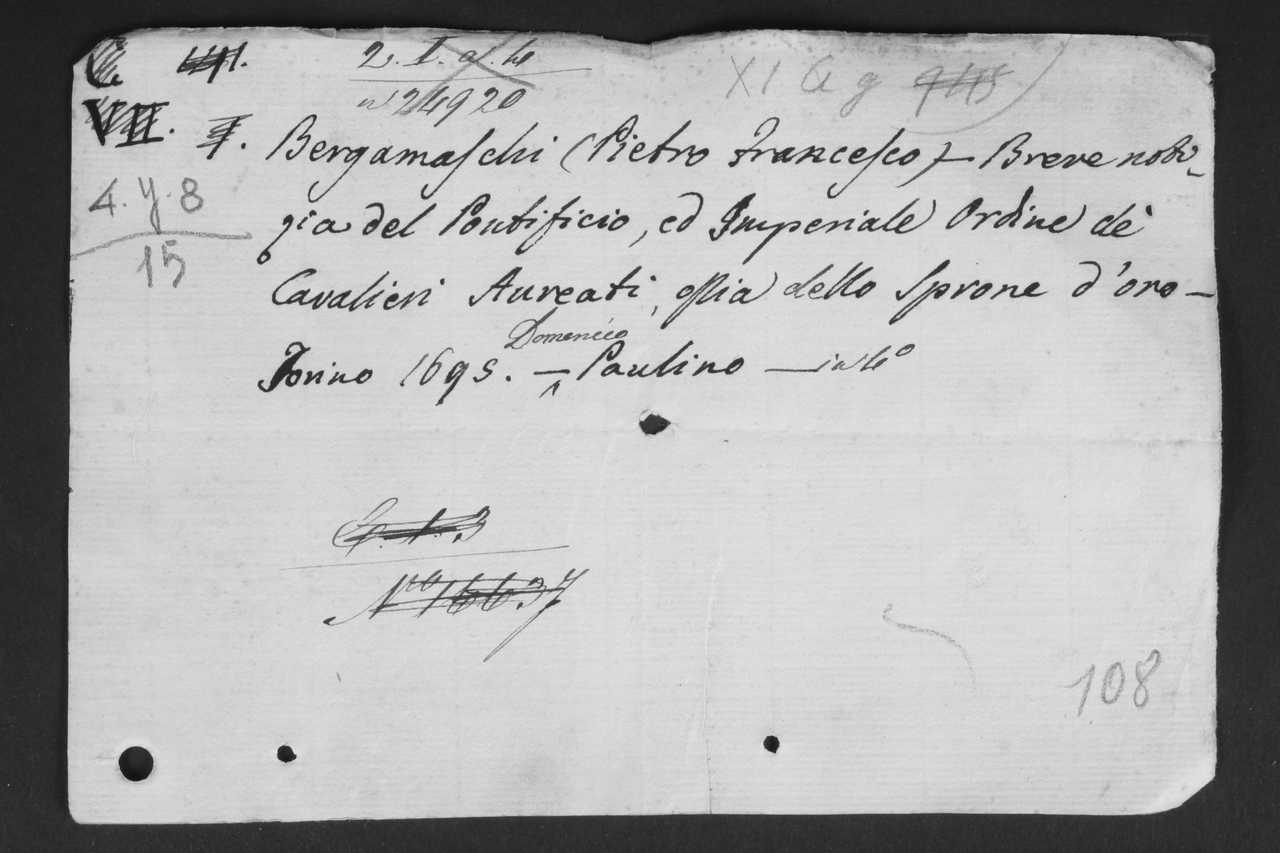 C. III.
2. I. a. 4
n° 24920
XI G g
VII. I.
4. y. 8
15
Bergamaschi (Pietro Francesco) — Breve noti-
zia del Pontificio, ed Imperiale Ordine de'
Cavalieri Aureati, ossia dello Sprone d'oro —
Torino 1695. — Domenico Paulino — in 4°
1. 3
N° 16637
108